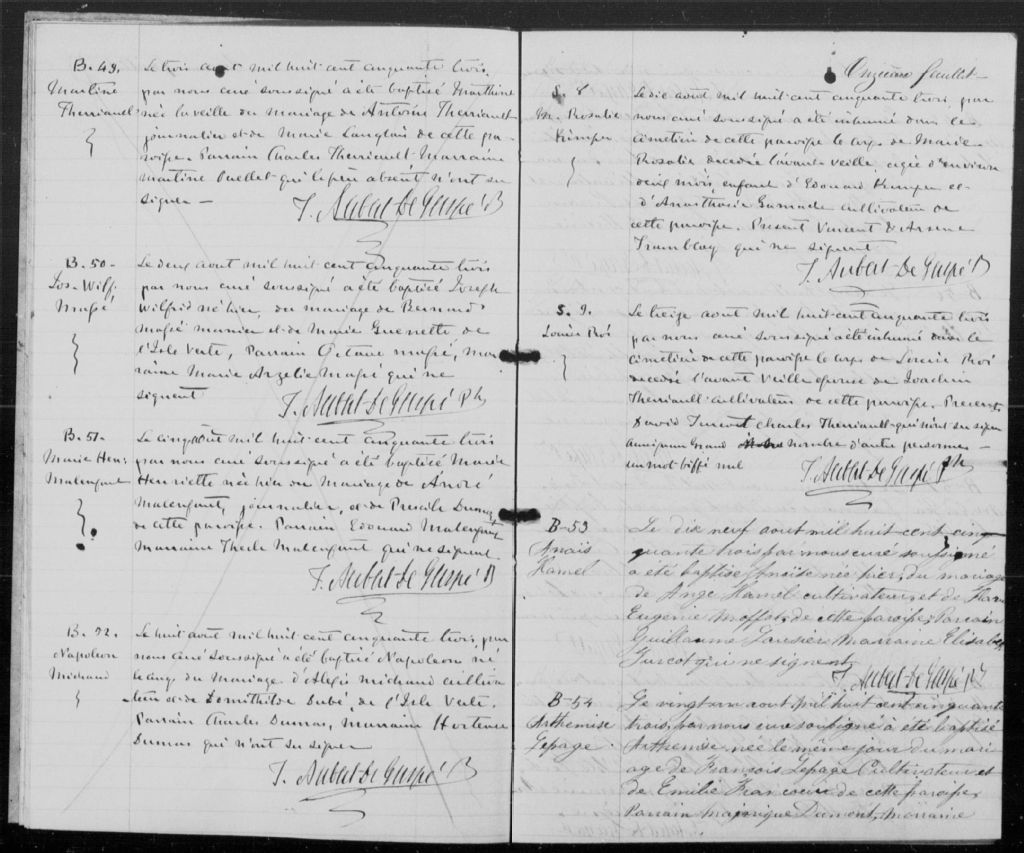 B. 49.
Martine
Therriault
Le trois aout mil huit cent cinquante trois,
par nous curé soussigné a été baptisé Marthine
née la veille du mariage de Antoine Therriault
journalier et de Marie Langlais de cette pa-
roisse. Parrain Charles Therriault Marraine
martine Ouellet qui le père absent n'ont su
signer —
T. Aubert De Gaspé Ptr
B. 50 -
Jos - Wilf.
Massé
Le deux aout mil huit cent cinquante trois
par nous curé soussigné a été baptisé Joseph
Wilfrid né hier, du mariage de Bernard
massé menier et de Marie Guerrette de
l'Isle Verte, Parrain Octave massé, mar-
raine Marie Arzelie Massé qui ne
signent
T. Aubert De Gaspé Ptr
B. 51 -
Marie Hen:
Malenfant
Le cinq aout mil huit cent cinquante trois
par nous curé soussigné a été baptisé Marie
Henriette née hier du Mariage de André
Malenfant, journalier, et de Prescile Dumas
de cette paroisse. Parrain Edouard Malenfant
Marraine Thecle Malenfant qui ne signent
T. Aubert De Gaspé Ptr
B. 52.
Napoleon
Michaud
Le huit aout mil huit cent cinquante trois, par
nous curé soussigné a été baptisé Napoleon né
le cinq du Mariage d'Alexis michaud cultiva
teur et de Domithilde Dubé, de l'Isle Verte.
Parrain Charles Dumas, Marraine Hortense
Dumas qui n'ont su signer
T. Aubert De Gaspé Ptr
Onzième feuillet
S. 8
M. Rosalie
Kimper
Le dix aout mil huit cent cinquante trois, par
nous curé soussigné a été inhumé dans le
cimetière de cette paroisse le corps de Marie
Rosalie decedée l'avant-veille, agée d'environ
deux mois, enfant d'Edouard Kimper et
d'Anasthasie Gamache cultivateur de
cette paroisse. Present Vincent & Arsene
Tramblay qui ne signent
T. Aubert De Gaspé Ptr
S. 9.
Louise Roi
Le treize aout mil huit cent cinquante trois
par nous curé soussigné a été inhumé dans le
cimetière de cette paroisse le corps de Louise Roi
decedée l'avant veille epouse de Joachim
Therriault cultivateur de cette paroisse. Presents
David charles Therriault qui n'ont su signer
Ainsi qu'un Grand nombre d'autre personnes —
un mot biffé nul
T. Aubert De Gaspé Ptr
B - 53
Anaïs
Hamel
Le dix neuf aout mil huit cent cinq
quante trois par nous curé soussigné
a été baptisé Anaïse née hier, du mariage
de Ange Hamel cultivateur, et de Flav.
Eugenie Moffat, de cette paroisse, Parrain
Guillaume Marraine Elisabeth
Turcot qui ne signent
T. Aubert De Gaspé Ptr
B - 54
Arthemise
Lepage
Le vingt un aout mil huit cent cinquante
trois, par nous curé soussigné a été baptisé
Arthemise née le même jour du mari
age de François Lepage Cultivateur et
de Emilie Francoeur de cette paroisse,
Parrain majorique Dumont, marraine